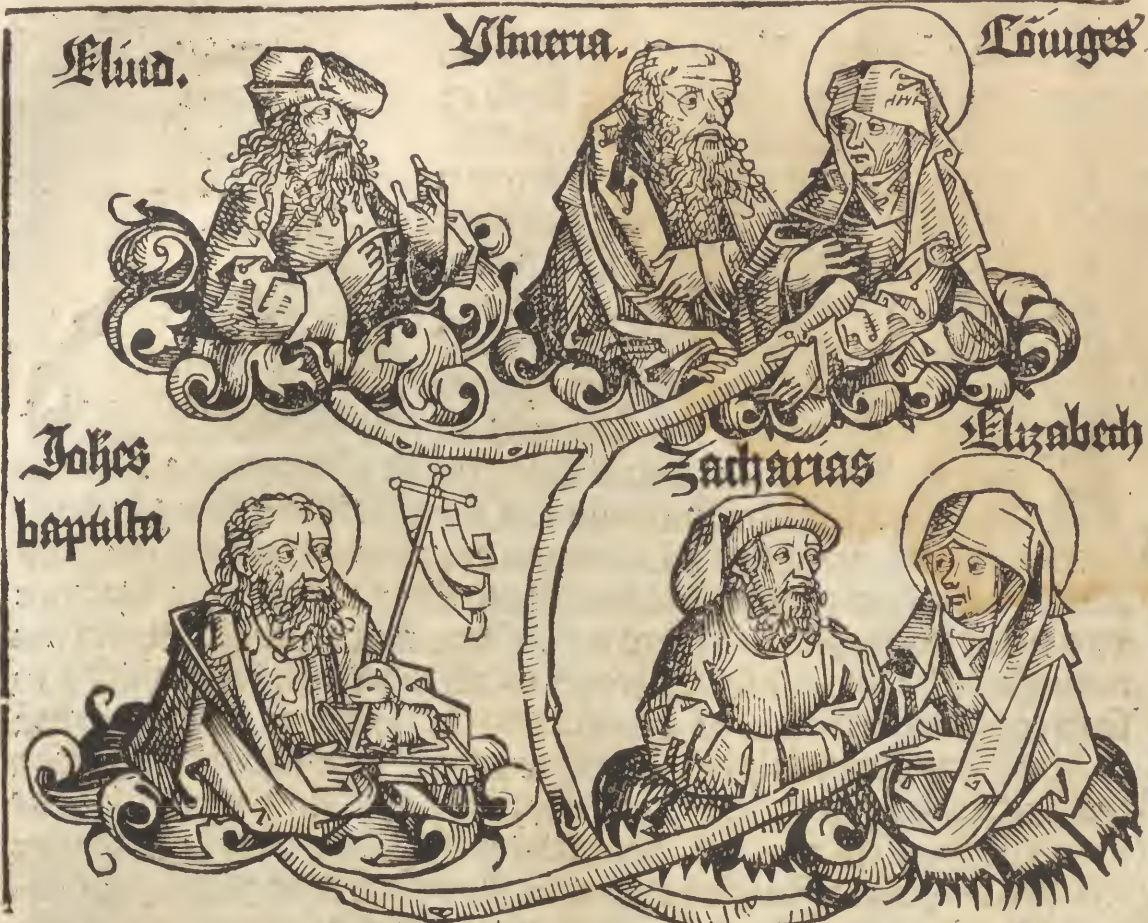 Eliud.
Ysmeria.
Cõiuges
Johes
baptista
Zacharias
Elizabeth